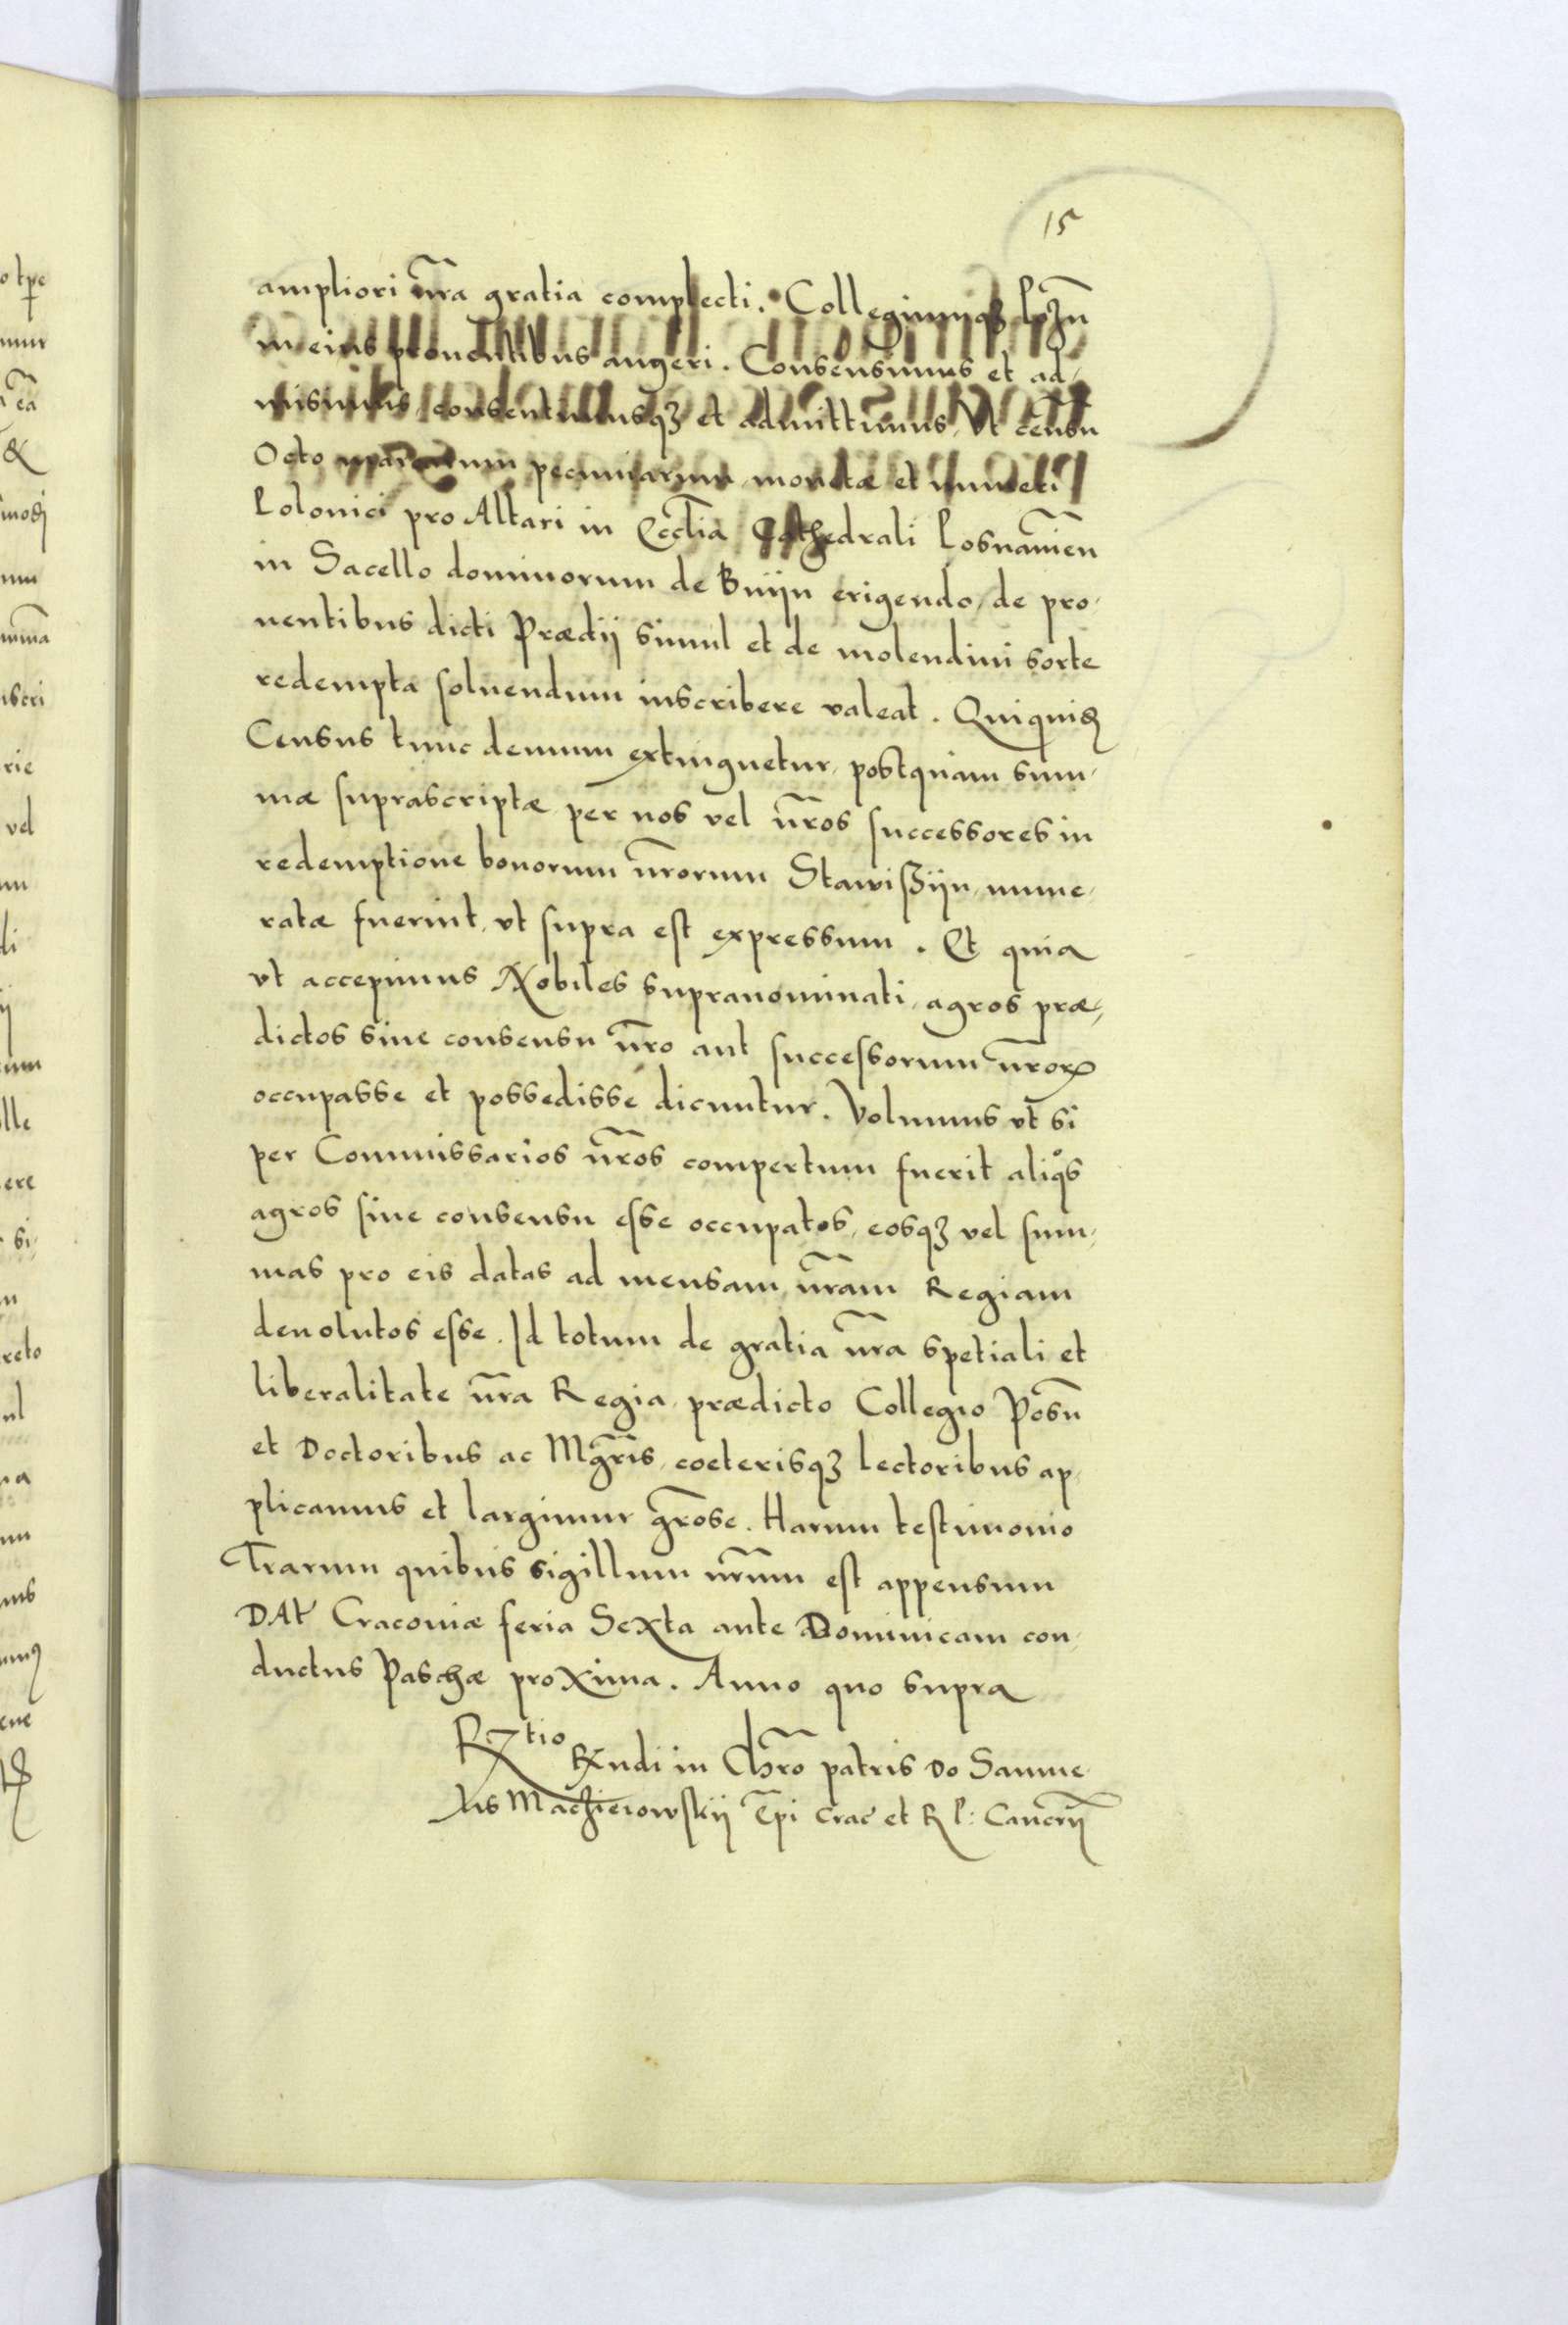 15
ampliori nr̃a gratia complecti. Collegiumqꝫ Pozn̄
in eius prouentibus augeri. Consensimus et ad-
misimus, consentimusqꝫ et admittimus, Vt censu
Octo marcarum pecuniarum, monetæ et numeri
Polonici pro Altari in Eccl̃ia Cathedrali Posnanień
in Sacello dominorum de Bnijn erigendo, de pro-
uentibus dicti Prædij simul et de molendini sorte
redempta soluendum inscribere valeat. Quiquid
Census tunc demum extinguetur, postquam sum-
mæ suprascriptæ per nos vel nr̃os successores in
redemptione bonorum nr̃orum Stawissijn, nume-
ratæ fuerint, vt supra est expressum. Et quia
vt accepimus Nobiles supranominati, agros præ-
dictos sine consensu nr̃o aut successorum nr̃orꝝ
occupasse et possedisse dicuntur. Volumus vt si
per Commissarios nr̃os compertum fuerit aliqͦs
agros sine consensu esse occupatos, eosqꝫ vel sum-
mas pro eis datas ad mensam nr̃am Regiam
deuolutos esse. Id totum de gratia nr̃a spetiali et
liberalitate nr̃a Regia, prædicto Collegio Posn̄
et Doctoribus ac Mgr̃is, coeterisqꝫ lectoribus ap-
plicamus et largimur gr̃ose. Harum testimonio
Lr̃arum quibus sigillum nr̃um est appensum
DAt̃ Cracouiæ feria Sexta ante Dominicam con-
ductus Paschæ proxima. Anno quo supra
R̃tio
Rx̃ndi in Chr̃o patris Do Samue-
lis Maczieiowskij Ẽpi Crac̃ et R P: Cancrij̃